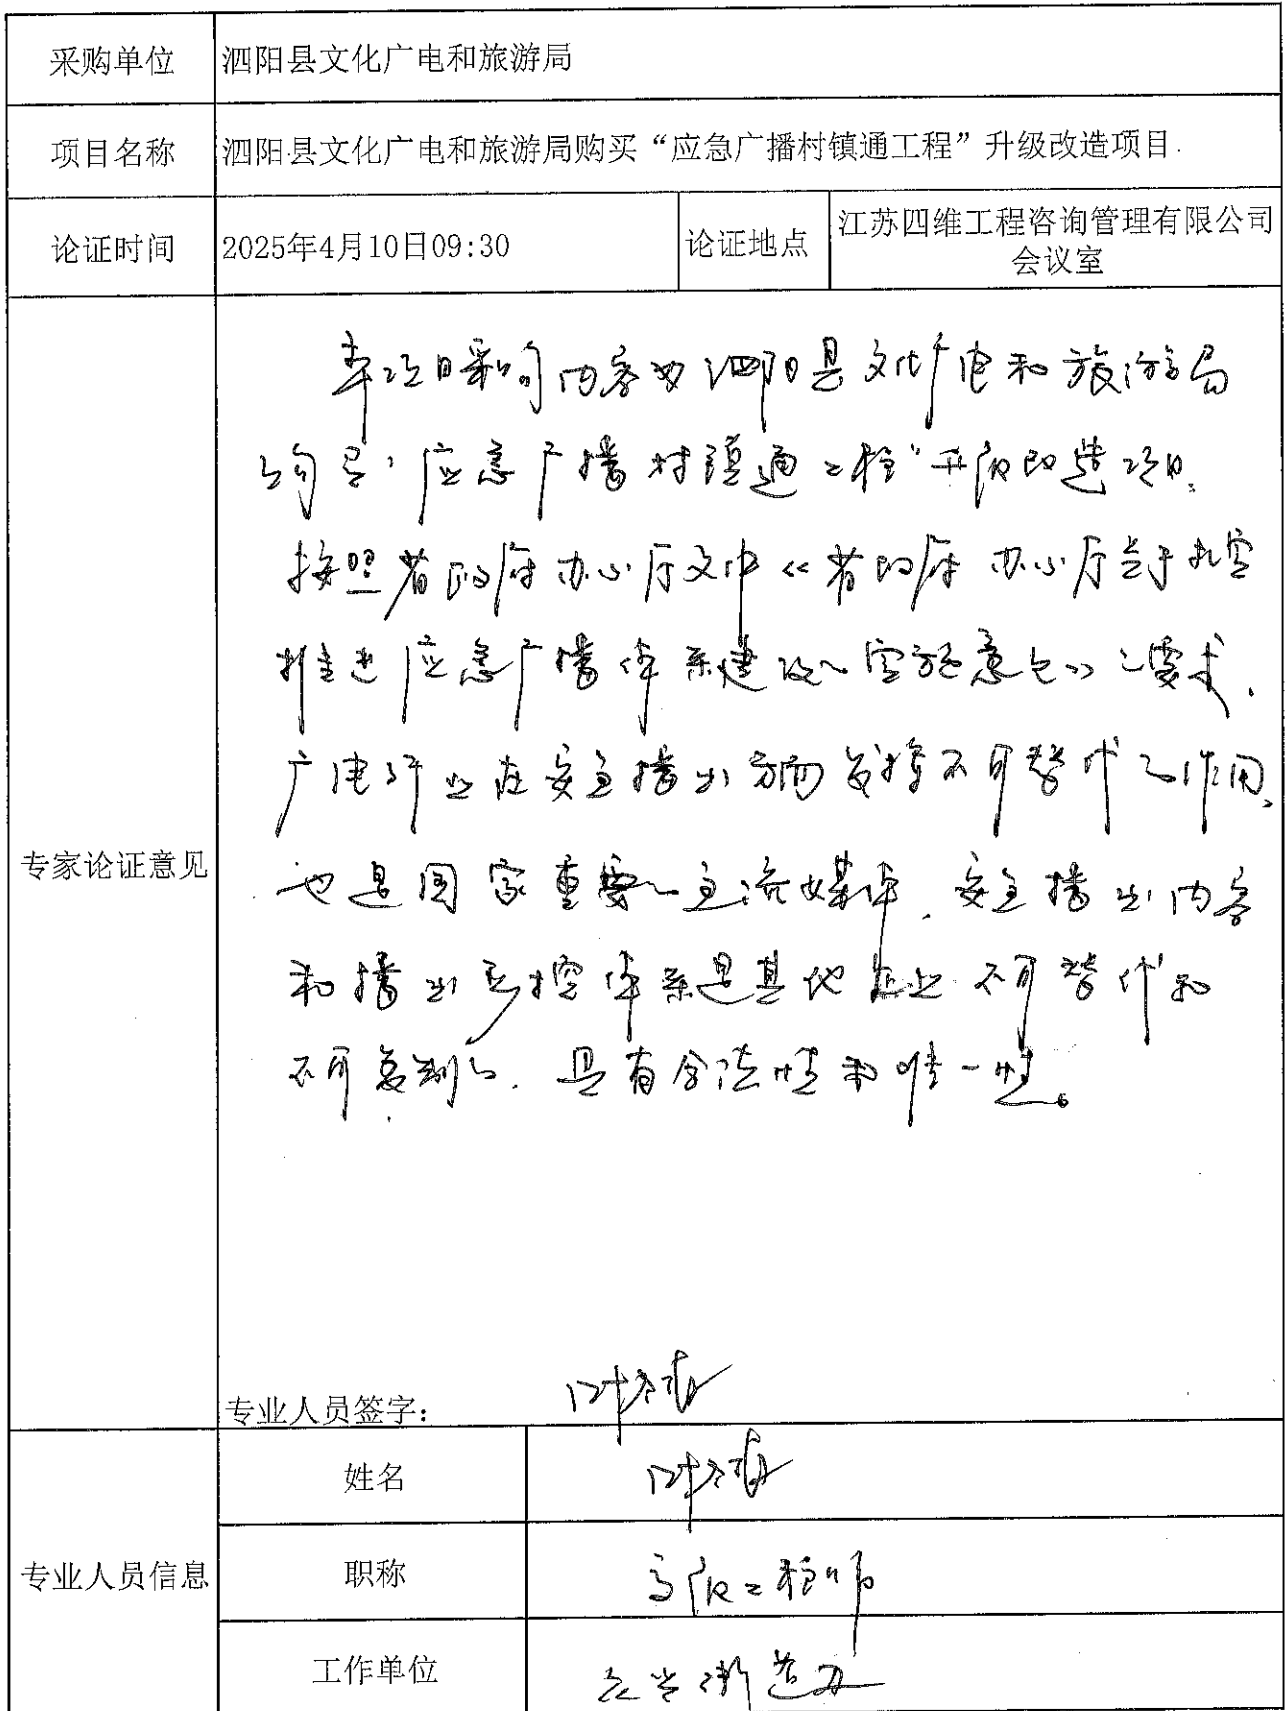 采购单位 泗阳县文化广电和旅游局
项目名称 泗阳县文化广电和旅游局购买“应急广播村镇通工程”升级改造项目
论证时间 2025年4月10日09:30 论证地点 江苏四维工程咨询管理有限公司
会议室
专家论证意见
本项目采购内容为泗阳县文化广电和旅游局
购买“应急广播村镇通工程”升级改造项目。
按照省政府办公厅文件《省政府办公厅关于扎实
推进应急广播体系建设的实施意见》的要求,
广电行业在安全播出方面发挥不可替代的作用,
也是国家重要的主流媒体,安全播出内容
和播出可控体系是其他企业不可替代和
不可复制的,具有合法性和唯一性。
专业人员签字:
专业人员信息
姓名
职称 高级工程师
工作单位 街道办